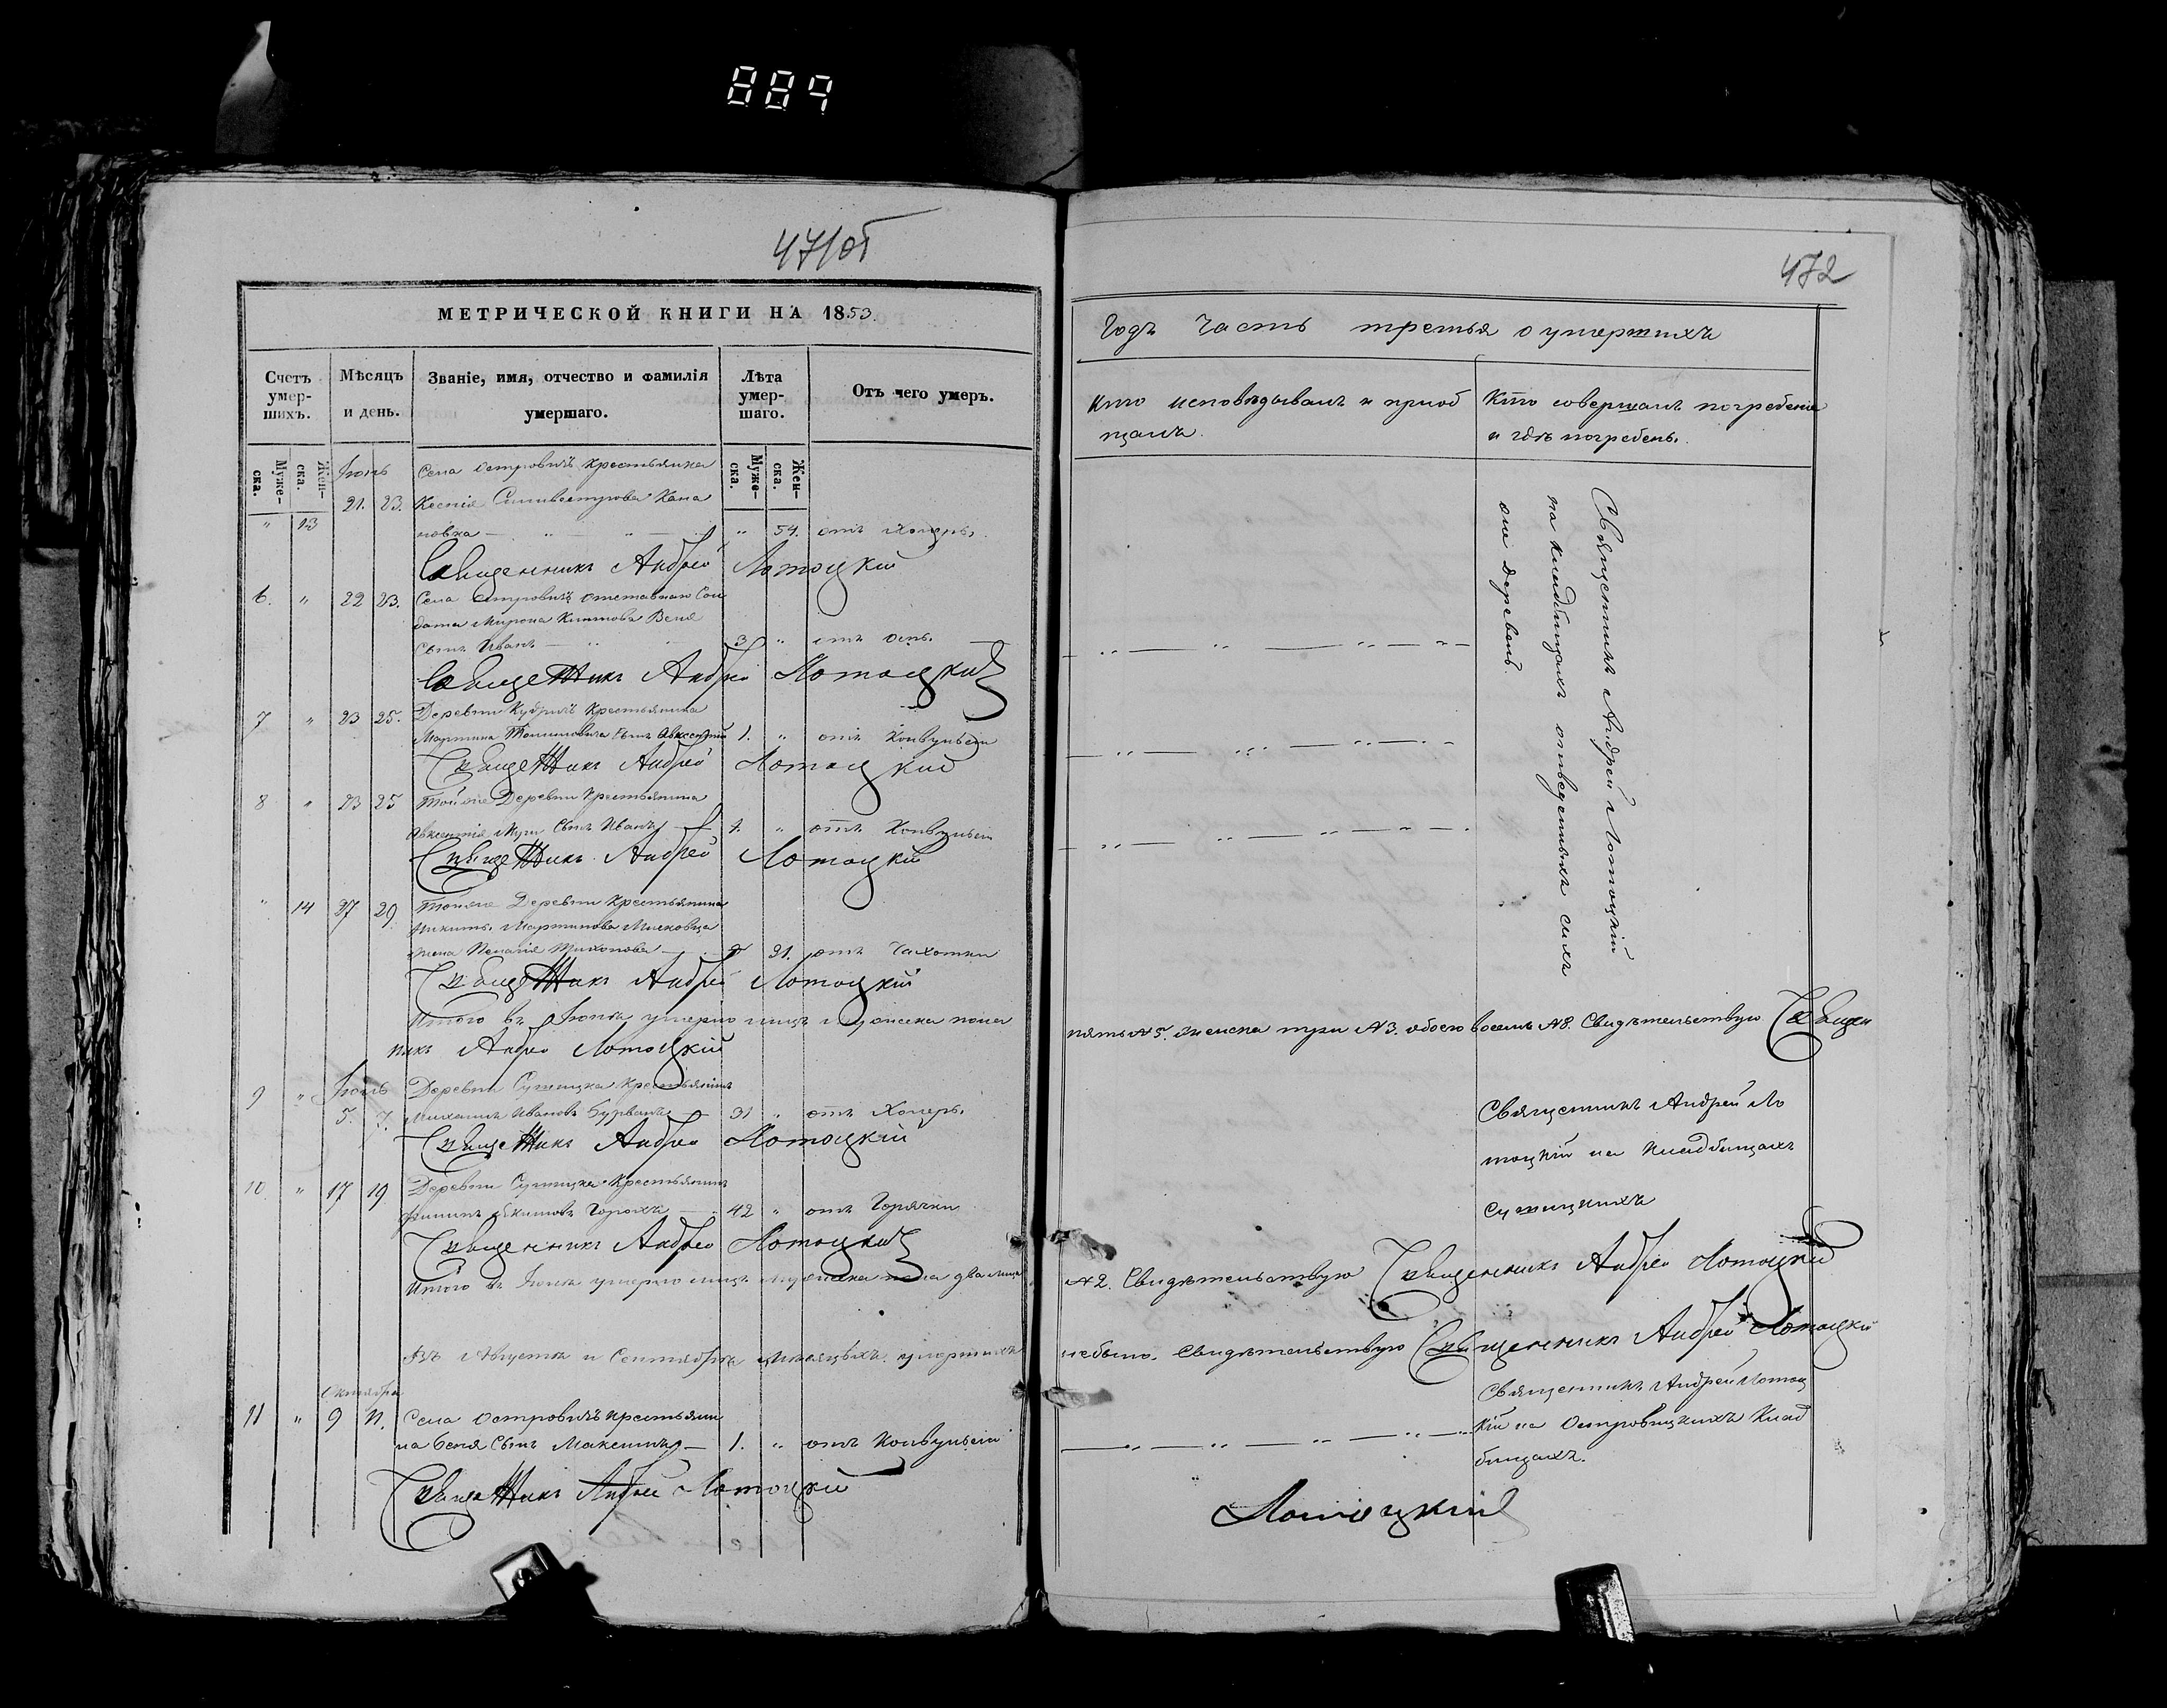 889
471об
МЕТРИЧЕСКОЙ КНИГИ НА 1853.
Счетъ умер-шихъ.
Мѣсяцъ и день.
Званіе, имя, отчество и фамилія умершаго.
Лѣта умер-шаго.
Отъ чего умеръ.
Муже-ска.
Жен-ска.
Муже-ска.
Жен-ска.
Іюнь
Села Островичъ Крестьянка
21. 23. Ксенія Силивестрова Кана
" 13 новка " 54. отъ Холеры.
Священникъ Андрей Лотоцкій
6. " 22 23. Села Островичъ отставнаго Сол
дата Мирона
Сынъ Иванъ 3 " отъ оспы.
Священникъ Андрей Лотоцкій
7 " 23 25. Деревни Кудринъ Крестьянина
Мартина Сынъ Авксентій 1. " отъ Конвульсіи
Священникъ Андрей Лотоцкій
8 " 23 25 Тойже Деревни Крестьянина
Авксентія Сынъ Иванъ " отъ Конвульсіи
Священникъ Андрей Лотоцкій
" 14 27 29 Тойже Деревни Крестьянина
Никиты Мартинова
жена Пелагія Тихонова 31. отъ Чахотки
Священникъ Андрей Лотоцкій
Итого въ Іюнѣ умерло лицъ мужеска пола
никъ Андрей Лотоцкій
9 " Іюль Деревни Крестьянинъ
5. 7. Михаилъ Ивановъ 31 " отъ Холеры.
Священникъ Андрей Лотоцкій
10. " 17 19 Деревни Крестьянинъ
42 " отъ Горячки
Священникъ Андрей Лотоцкій
Итого въ Іюлѣ умерло лицъ мужеска пола два лица
Въ Августѣ и Сентябрѣ мѣсяцѣхъ умершихъ
Октября
11 " 9 11. Села Островичъ крестьяни
на Сынъ Максимъ 1. " отъ Конвульсіи
Священникъ Андрей Лотоцкій
472
Годъ Часть третья о умершихъ
Кто исповѣдывалъ и пріоб
щалъ.
Кто совершалъ погребеніе
и гдѣ погребены.
Священникъ Андрей Лотоцкій
на Кладбищахъ отведенныхъ сихъ
деревень
пять №5. женска три №3. обоего восемь №8. Свидѣтельствую Священ
Священникъ Андрей Ло
тоцкій на Кладбищахъ
№2. Свидѣтельствую Священникъ Андрей Лотоцкій
небыло. Свидѣтельствую Священникъ Андрей Лотоцкій
Священникъ Андрей Лотоц
кій на Островецкихъ Клад
бищахъ.
Лотоцкий